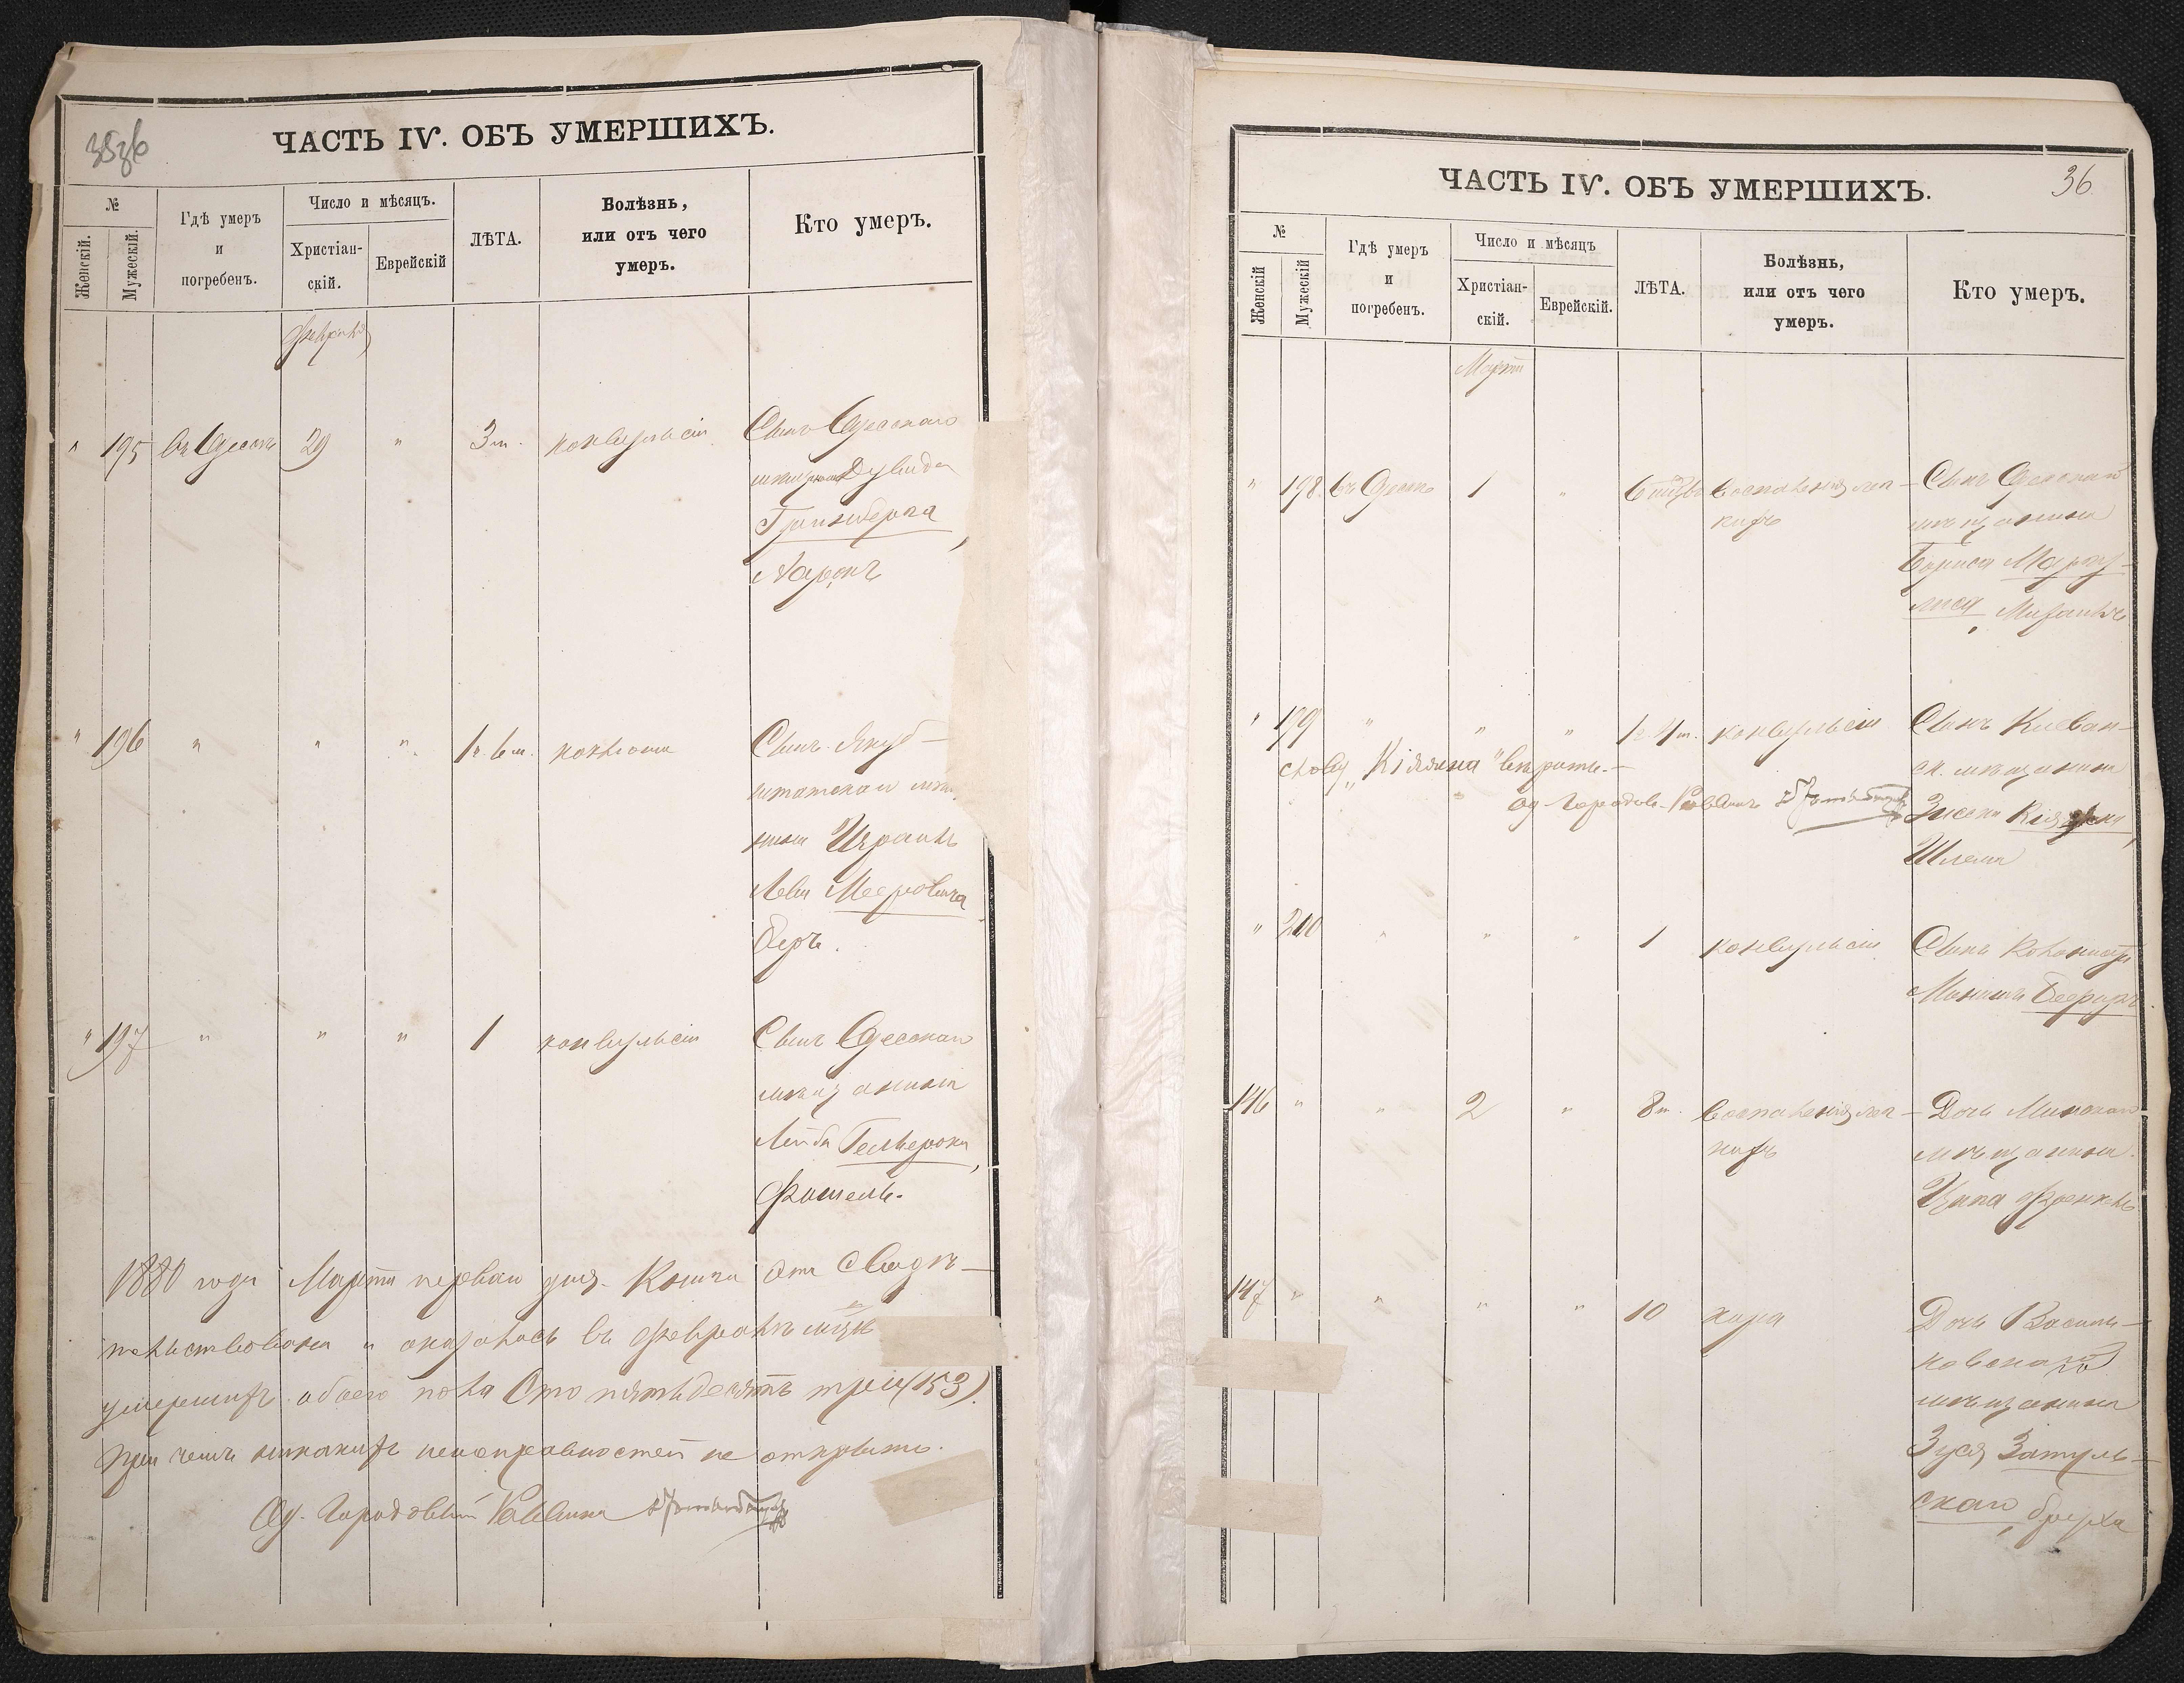 35об
ЧАСТЬ IV. ОБЪ УМЕРШИХЪ.
№
Женскій.
Мужескій.
Гдѣ умеръ
и
погребенъ.
Число и мѣсяцъ.
Христіан-
скій.
Еврейскій
ЛѢТА.
Болѣзнь,
или отъ чего
умеръ.
Кто умеръ.
Февраля
" 195 въ Одессѣ 29 " 3 м. конвульсіи Сынъ Одесскаго
мѣщанина Дувида
Гринберга,
Ааронъ
" 196 " " " 1 г. 6 м. коклюшъ Сынъ
Израиль
Лейви Мееровича
Беръ.
" 197 " " " 1 конвульсіи Сынъ Одесскаго
мѣщанина
Лейба
Фишель.
1880 года Марта перваго дня. Книга эта свидѣ-
тельствована и оказалось въ Февралѣ мцѣ
умершихъ обоего пола Сто пятьдесятъ три (153).
При чемъ никакихъ неисправностей не открыто.
Од. Городовый Раввинъ
36
ЧАСТЬ IV. ОБЪ УМЕРШИХЪ.
№
Женскій
Мужескій
Гдѣ умеръ
и
погребенъ.
Число и мѣсяцъ
Христіан-
скій.
Еврейскій.
ЛѢТА.
Болѣзнь,
или отъ чего
умеръ.
Кто умеръ.
Марта
" 198 въ Одессѣ 1 " 6 воспаленія лег-
кихъ
Сынъ Одесскаго
мѣщанина
Бориса Маргу-
лиса,
" 199 " " " 1 г. 4 м. конвульсіи Сынъ
мѣщанина
слову „Кіянина"
Од. Городов. Раввинъ
Шлема
" 200 " " " 1 конвульсіи Сынъ колониста
146 " " 2 " 8 м. воспаленія лег-
кихъ
Дочь Минскаго
мѣщанина
Ципа Френкель
147 " " " " 10 Дочь Василь-
ковскаго
мѣщанина
Зуся Затуль-
скаго, Брейха